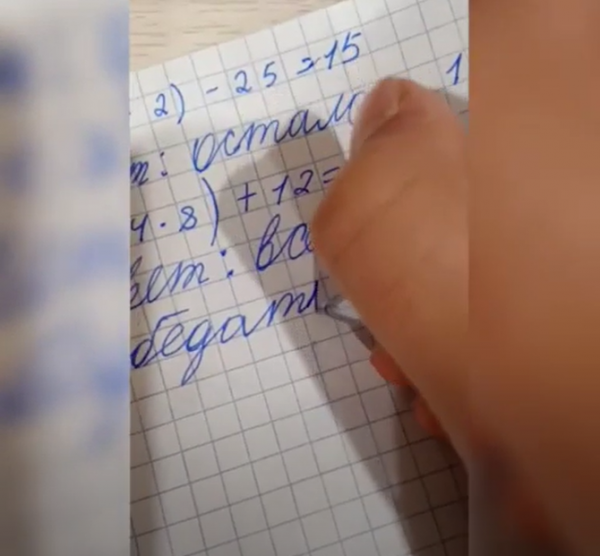 · 2) - 25 = 15
т: остало 1
4 · 8) + 12 =
вет: вс
обедать